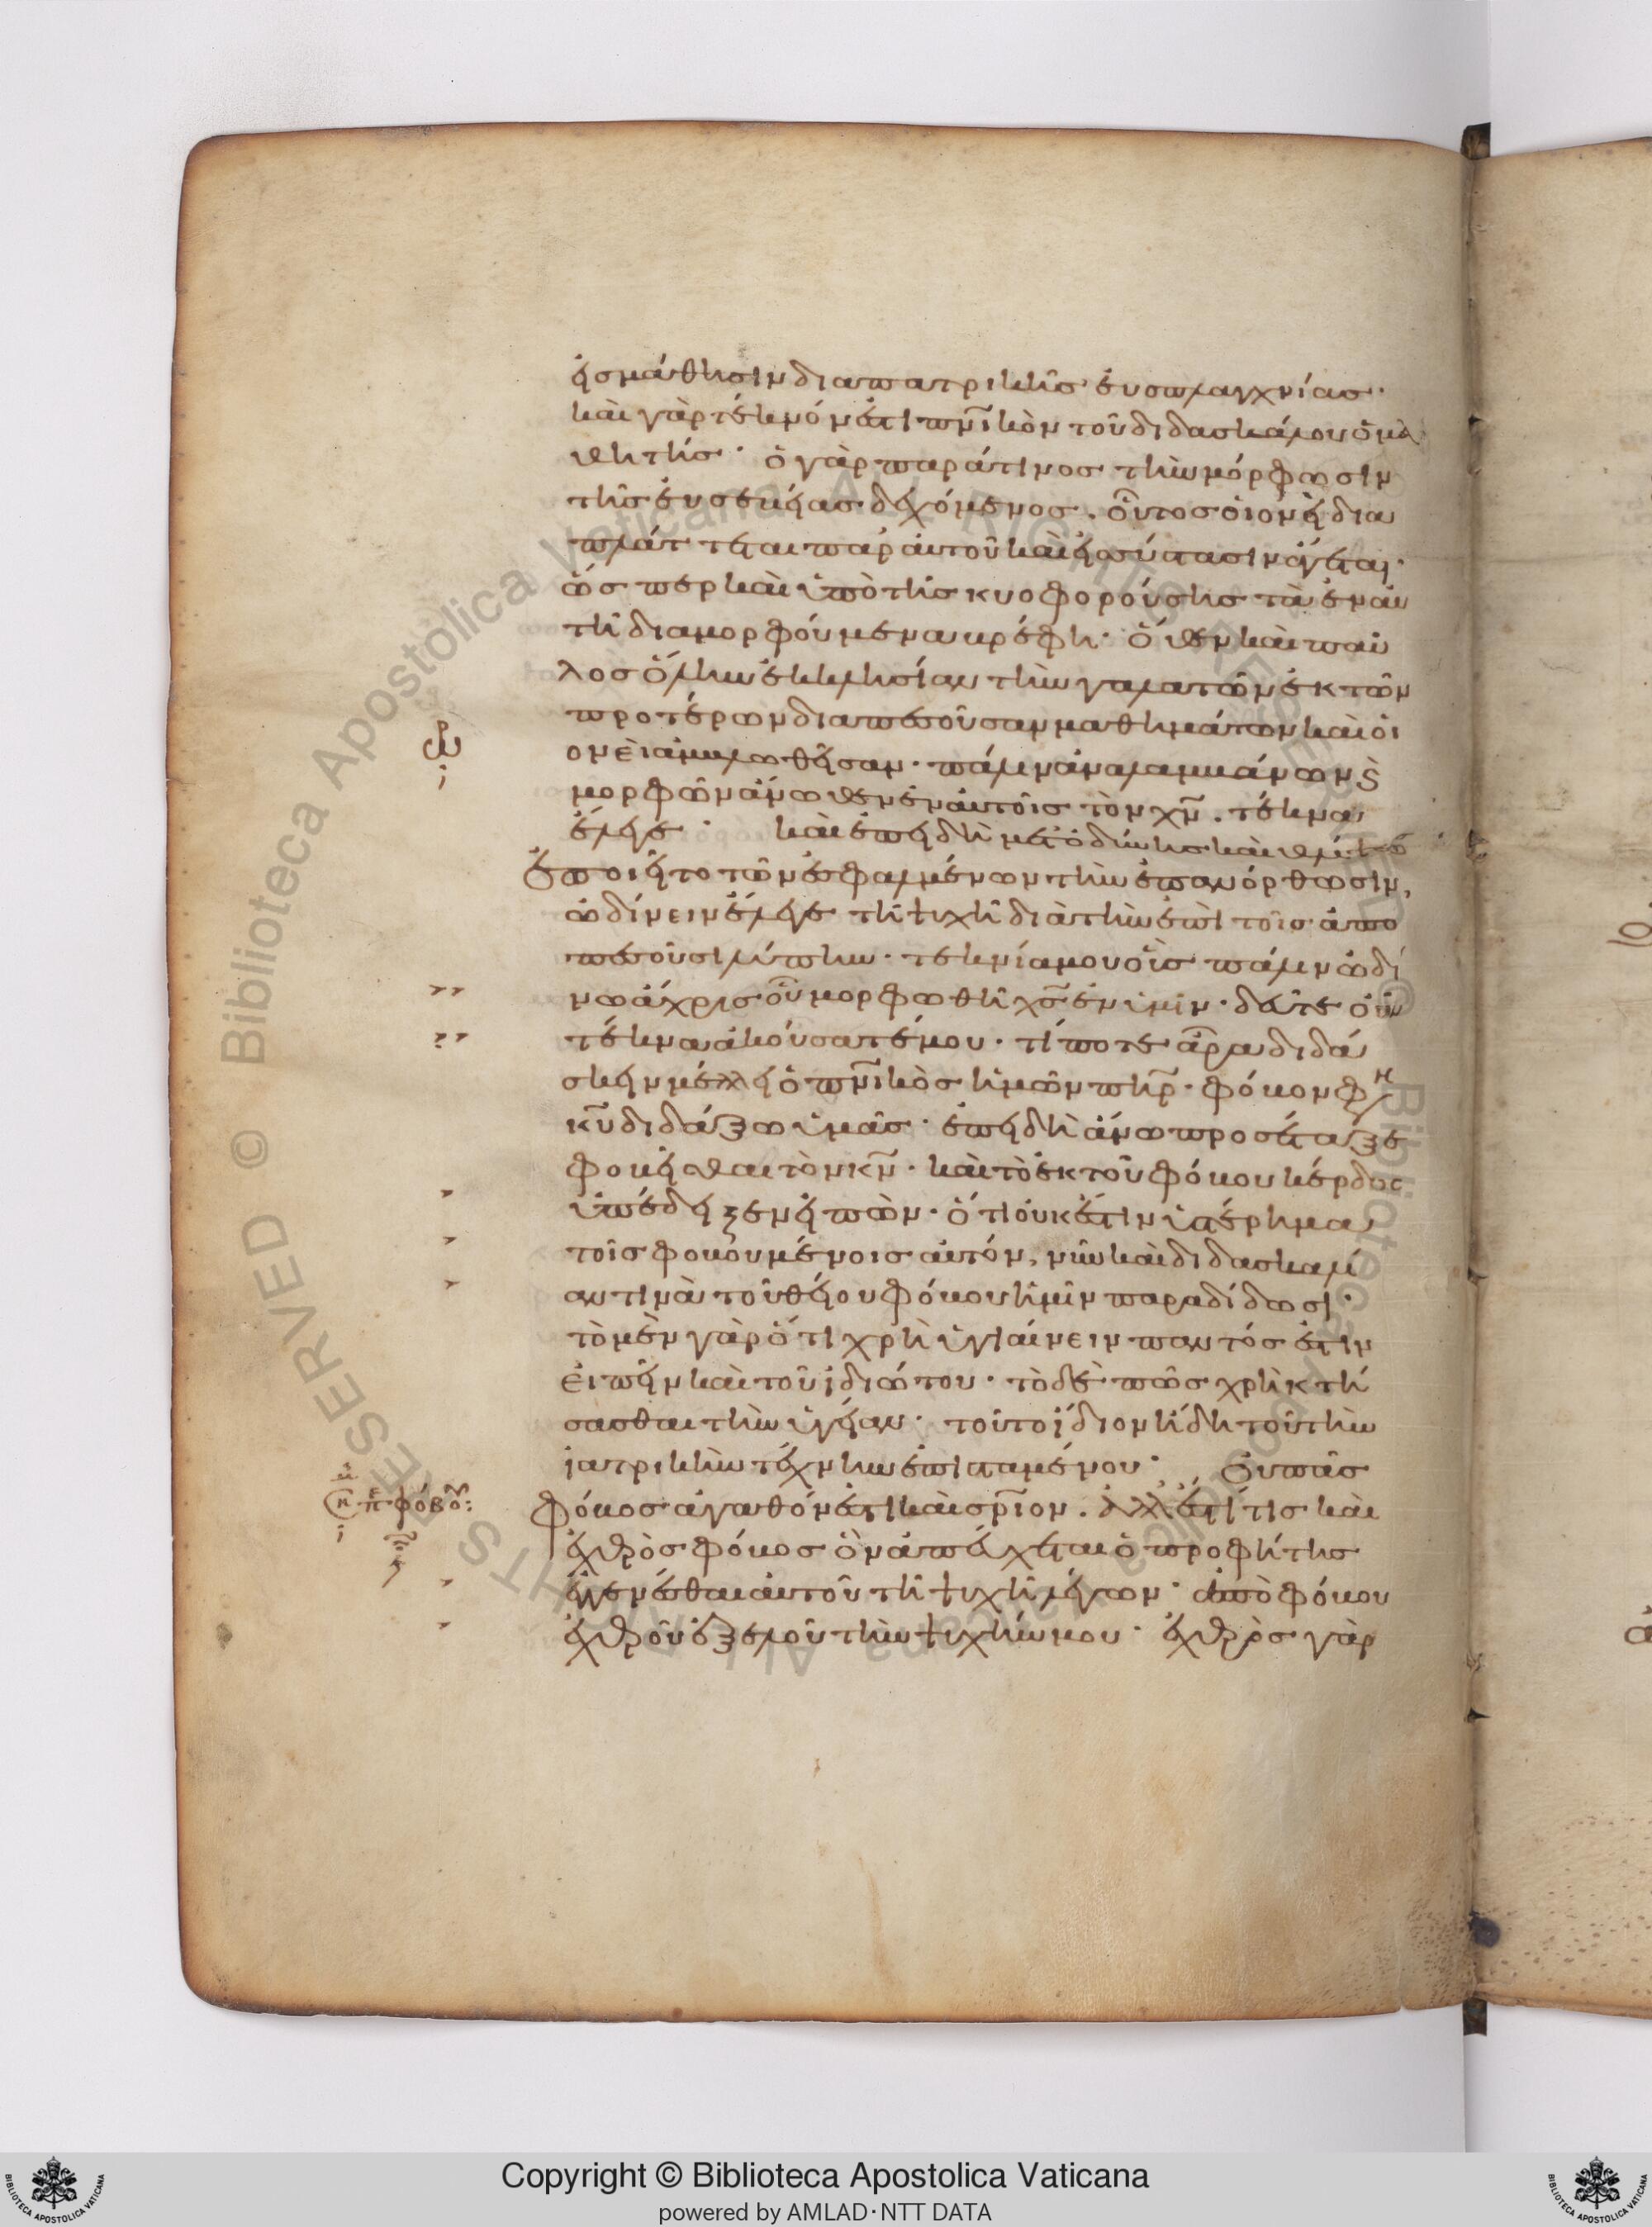 εἰς μάθησιν διὰ πατρικῆς εὐσπλαγχνίας·
καὶ γὰρ τέκνόν ἐστι πν̅ικὸν τοῦ διδασκάλου ὁ μα
θητής· ὁ γὰρ παρά τινος τὴν μόρφωσιν
τῆς εὐσεβείας δεχόμενος. οὗτος οἱονεὶ δια
πλάττεται παρ' αὐτοῦ καὶ εἰς σύστασιν ἄγεται·
ὥσπερ καὶ ὑπὸ τῆς κυοφορούσης τὰ ἐν αὐ
τῆ διαμορφούμενα βρέφη· ὅθεν καὶ παῦ
λος ὅλην ἐκκλησίαν τὴν γαλατῶν ἐκ τῶν
προτέρων διαπεσοῦσαν μαθημάτων καὶ οἱ
ονεὶ ἀμβλωθεῖσαν· πάλιν ἀναλαμβάνων ϗ
μορφῶν ἄνωθεν ἐν αὐτοῖς τὸν χν̅. τέκνα
ἔλεγε· καὶ ἐπειδὴ μετ' ὀδύνης καὶ θλίψεω
ἐποιεῖτο τῶν ἐσφαλμένων τὴν ἐπανόρθωσιν,
ὠδίνειν ἔλεγε τῆ ψυχῆ διὰ τὴν ἐπὶ τοῖς ἀπο
πεσοῦσι λύπην· τεκνία μου οὓς πάλιν ὠδί
νω ἄχρις οὗ μορφωθῆ χς̅ ἐν ὑμῖν· δεῦτε οὖν
τέκνα ἀκούσατέ μου· τί ποτε ἄρα διδά
σκειν μέλλει ὁ πν̅ικὸς ἡμῶν πηρ̅· φόβον φη
κυ̅ διδάξω ὑμᾶς· ἐπειδὴ ἄνω προσέταξε
φοβεῖσθαι τὸν κν̅· καὶ τὸ ἐκ τοῦ φόβου κέρδος
ὑπέδειξεν εἰπὼν· ὅτι οὐκ ἔστιν ὑστέρημα
τοῖς φοβουμένοις αὐτόν, νῦν καὶ διδασκαλί
αν τινὰ τοῦ θείου φόβου ἡμῖν παραδίδωσι·
τὸ μὲν γὰρ ὅτι χρὴ ὑγιαίνειν παντός ἐστιν
εἰπεῖν καὶ τοῦ ἰδιώτου· τὸ δὲ πῶς χρὴ κτή
σασθαι τὴν ὑγείαν· τοῦτο ἴδιον ἤδη τοῦ τὴν
ἰατρικὴν τέχνην ἐπισταμένου· οὐ πᾶς
φόβος ἀγαθόν ἐστι καὶ σρ̅ιον. ἀλλ' ἔστί τις καὶ
ἐχθρὸς φόβος ὃν ἀπεύχεται ὁ προφήτης
ἐγγενέσθαι αὐτοῦ τῆ ψυχῆ λέγων· ἀπὸ φόβου
ἐχθροῦ ἐξελοῦ τὴν ψυχήν μου· ἐχθρὸς γὰρ
Copyright © Biblioteca Apostolica Vaticana
powered by AMLAD·NTT DATA